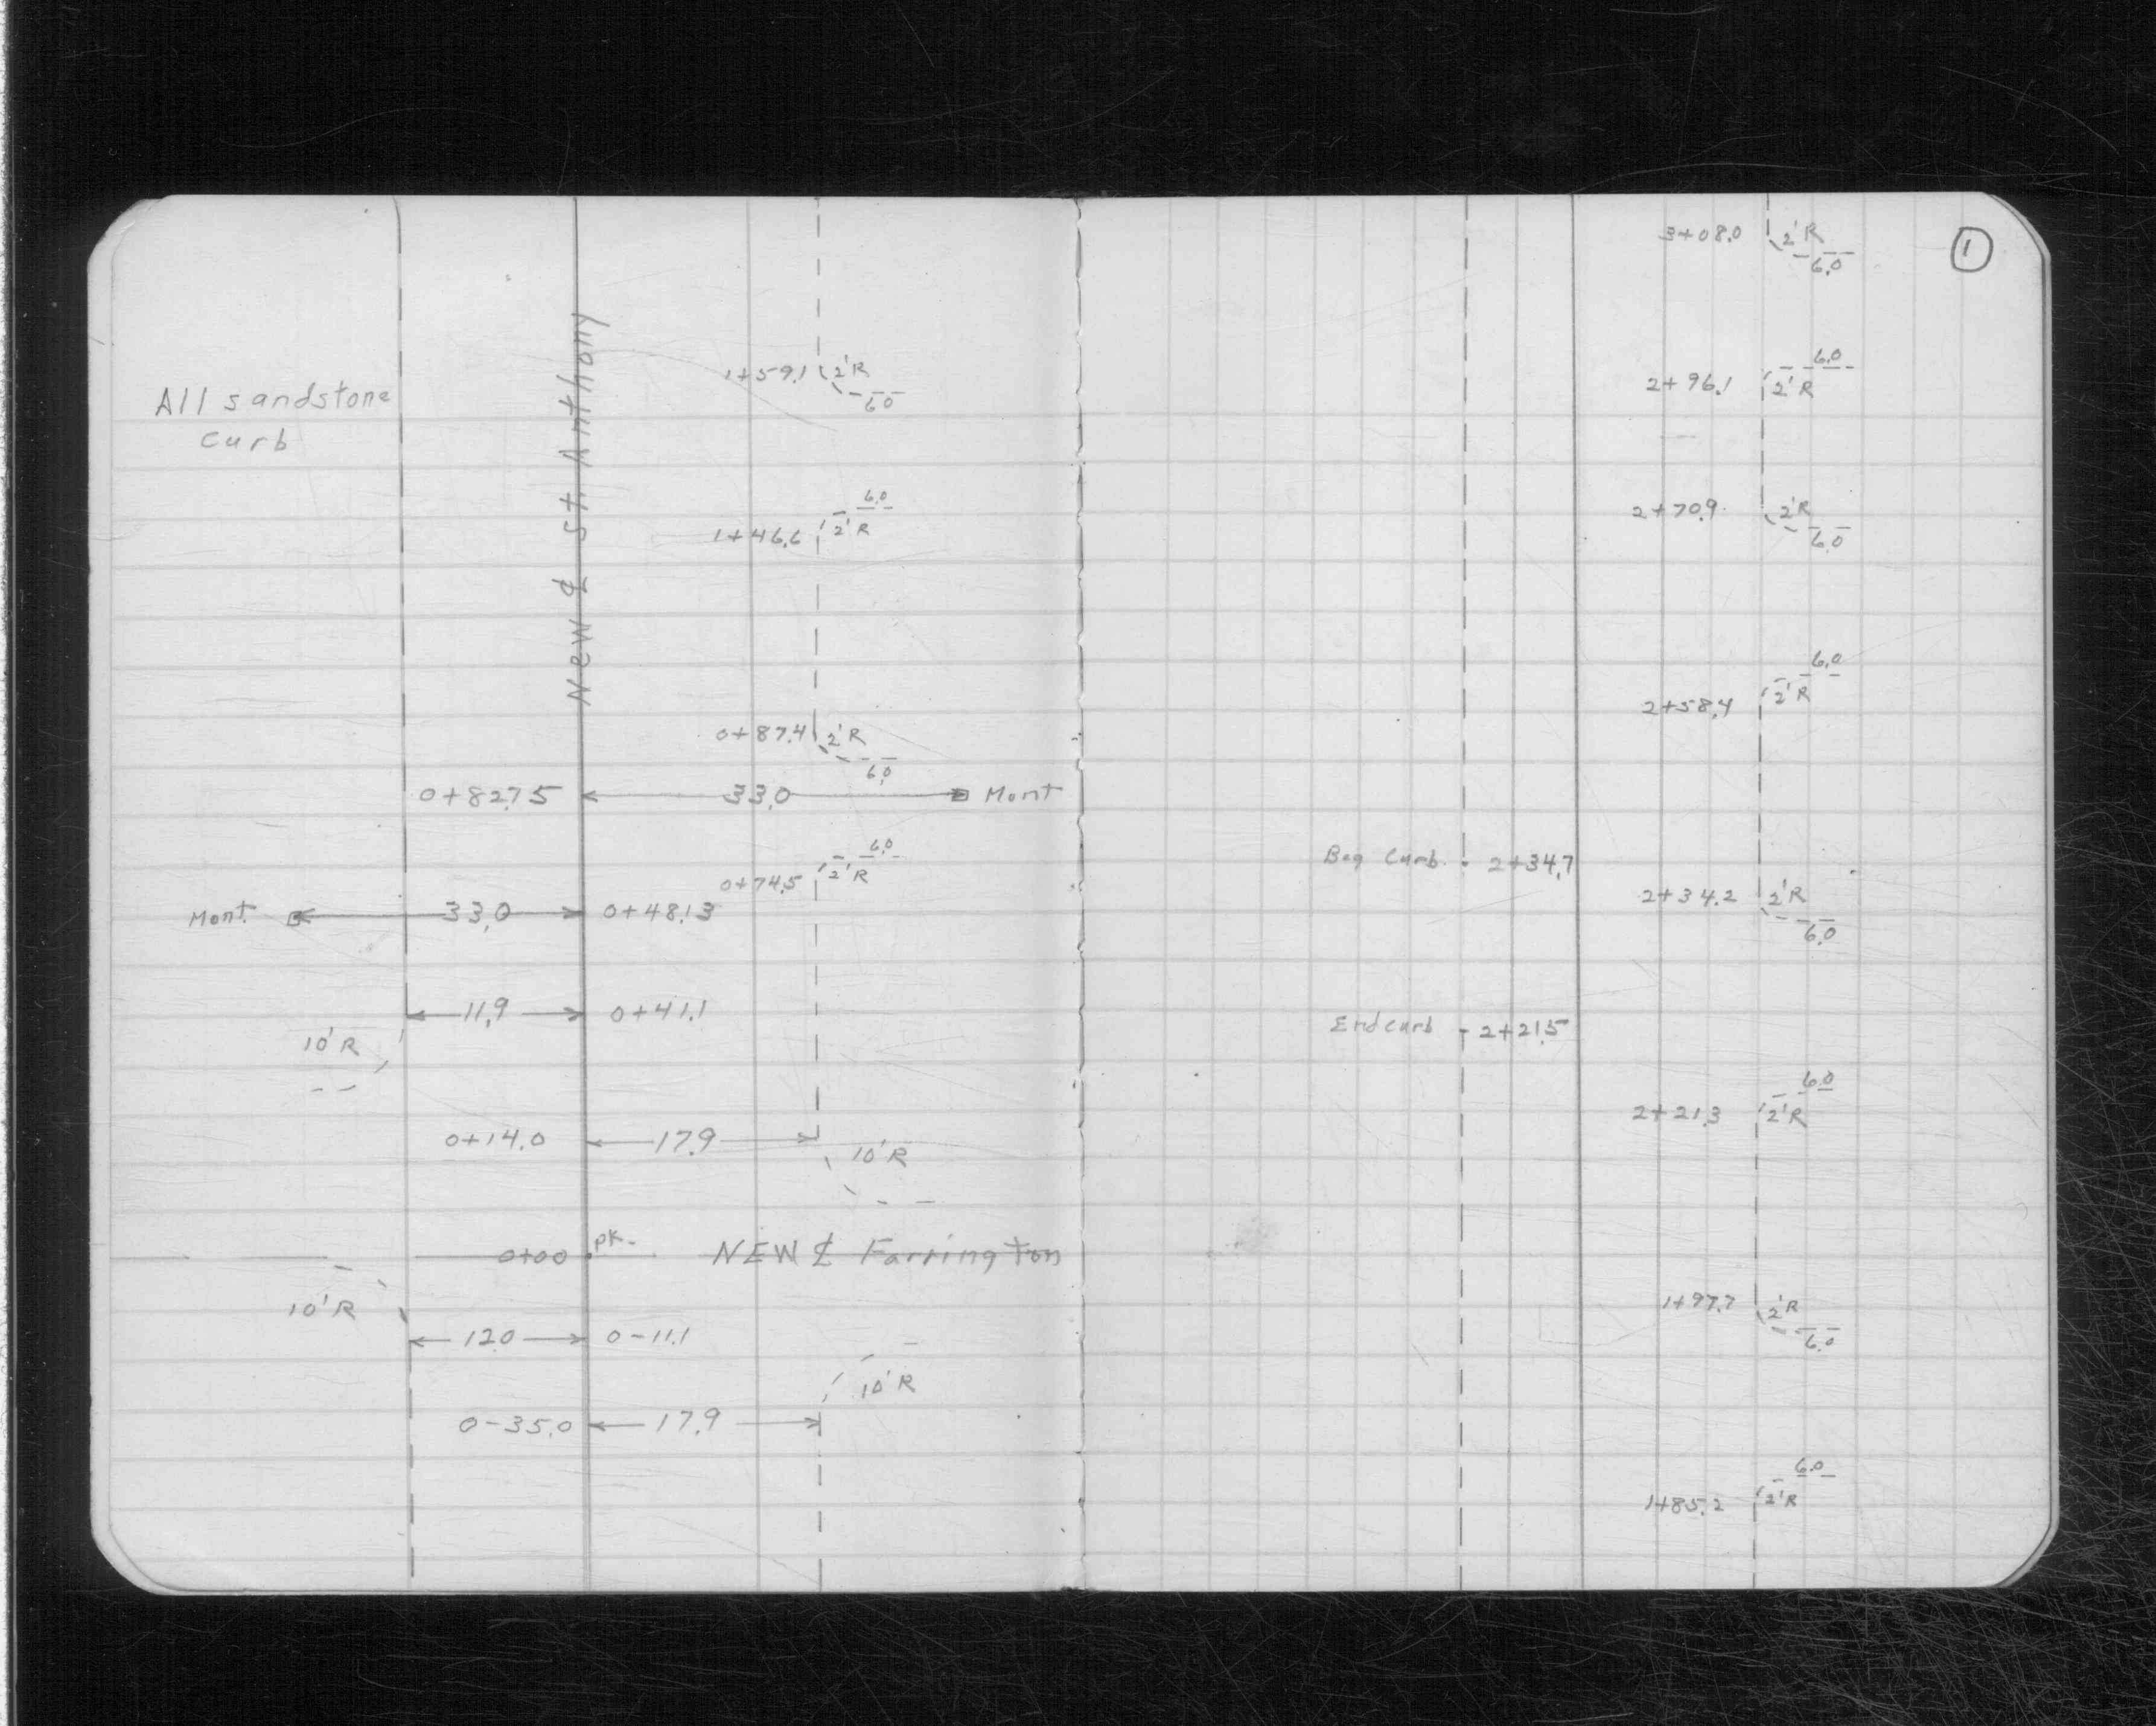 All sandstone
curb
New ℄ St. Anthony
1+59.1 2'R
6.0
6.0
1+46.6 2'R
0+87.4 2'R
6.0
0+82.75 33.0 Mont
6.0
0+74.5 2'R
Mont. 33.0 0+48.13
11.9 0+41.1
10'R
0+14.0 17.9 10'R
0+00 pk. NEW ℄ Farrington
10'R
12.0 0-11.1
10'R
0-35.0 17.9
1
3+08.0 2'R
6.0
6.0
2+96.1 2'R
2+70.9 2'R
6.0
6.0
2+58.4 2'R
Beg Curb 2+34.7
2+34.2 2'R
6.0
End curb 2+21.5
6.0
2+21.3 2'R
1+97.7 2'R
6.0
6.0
1+85.2 2'R